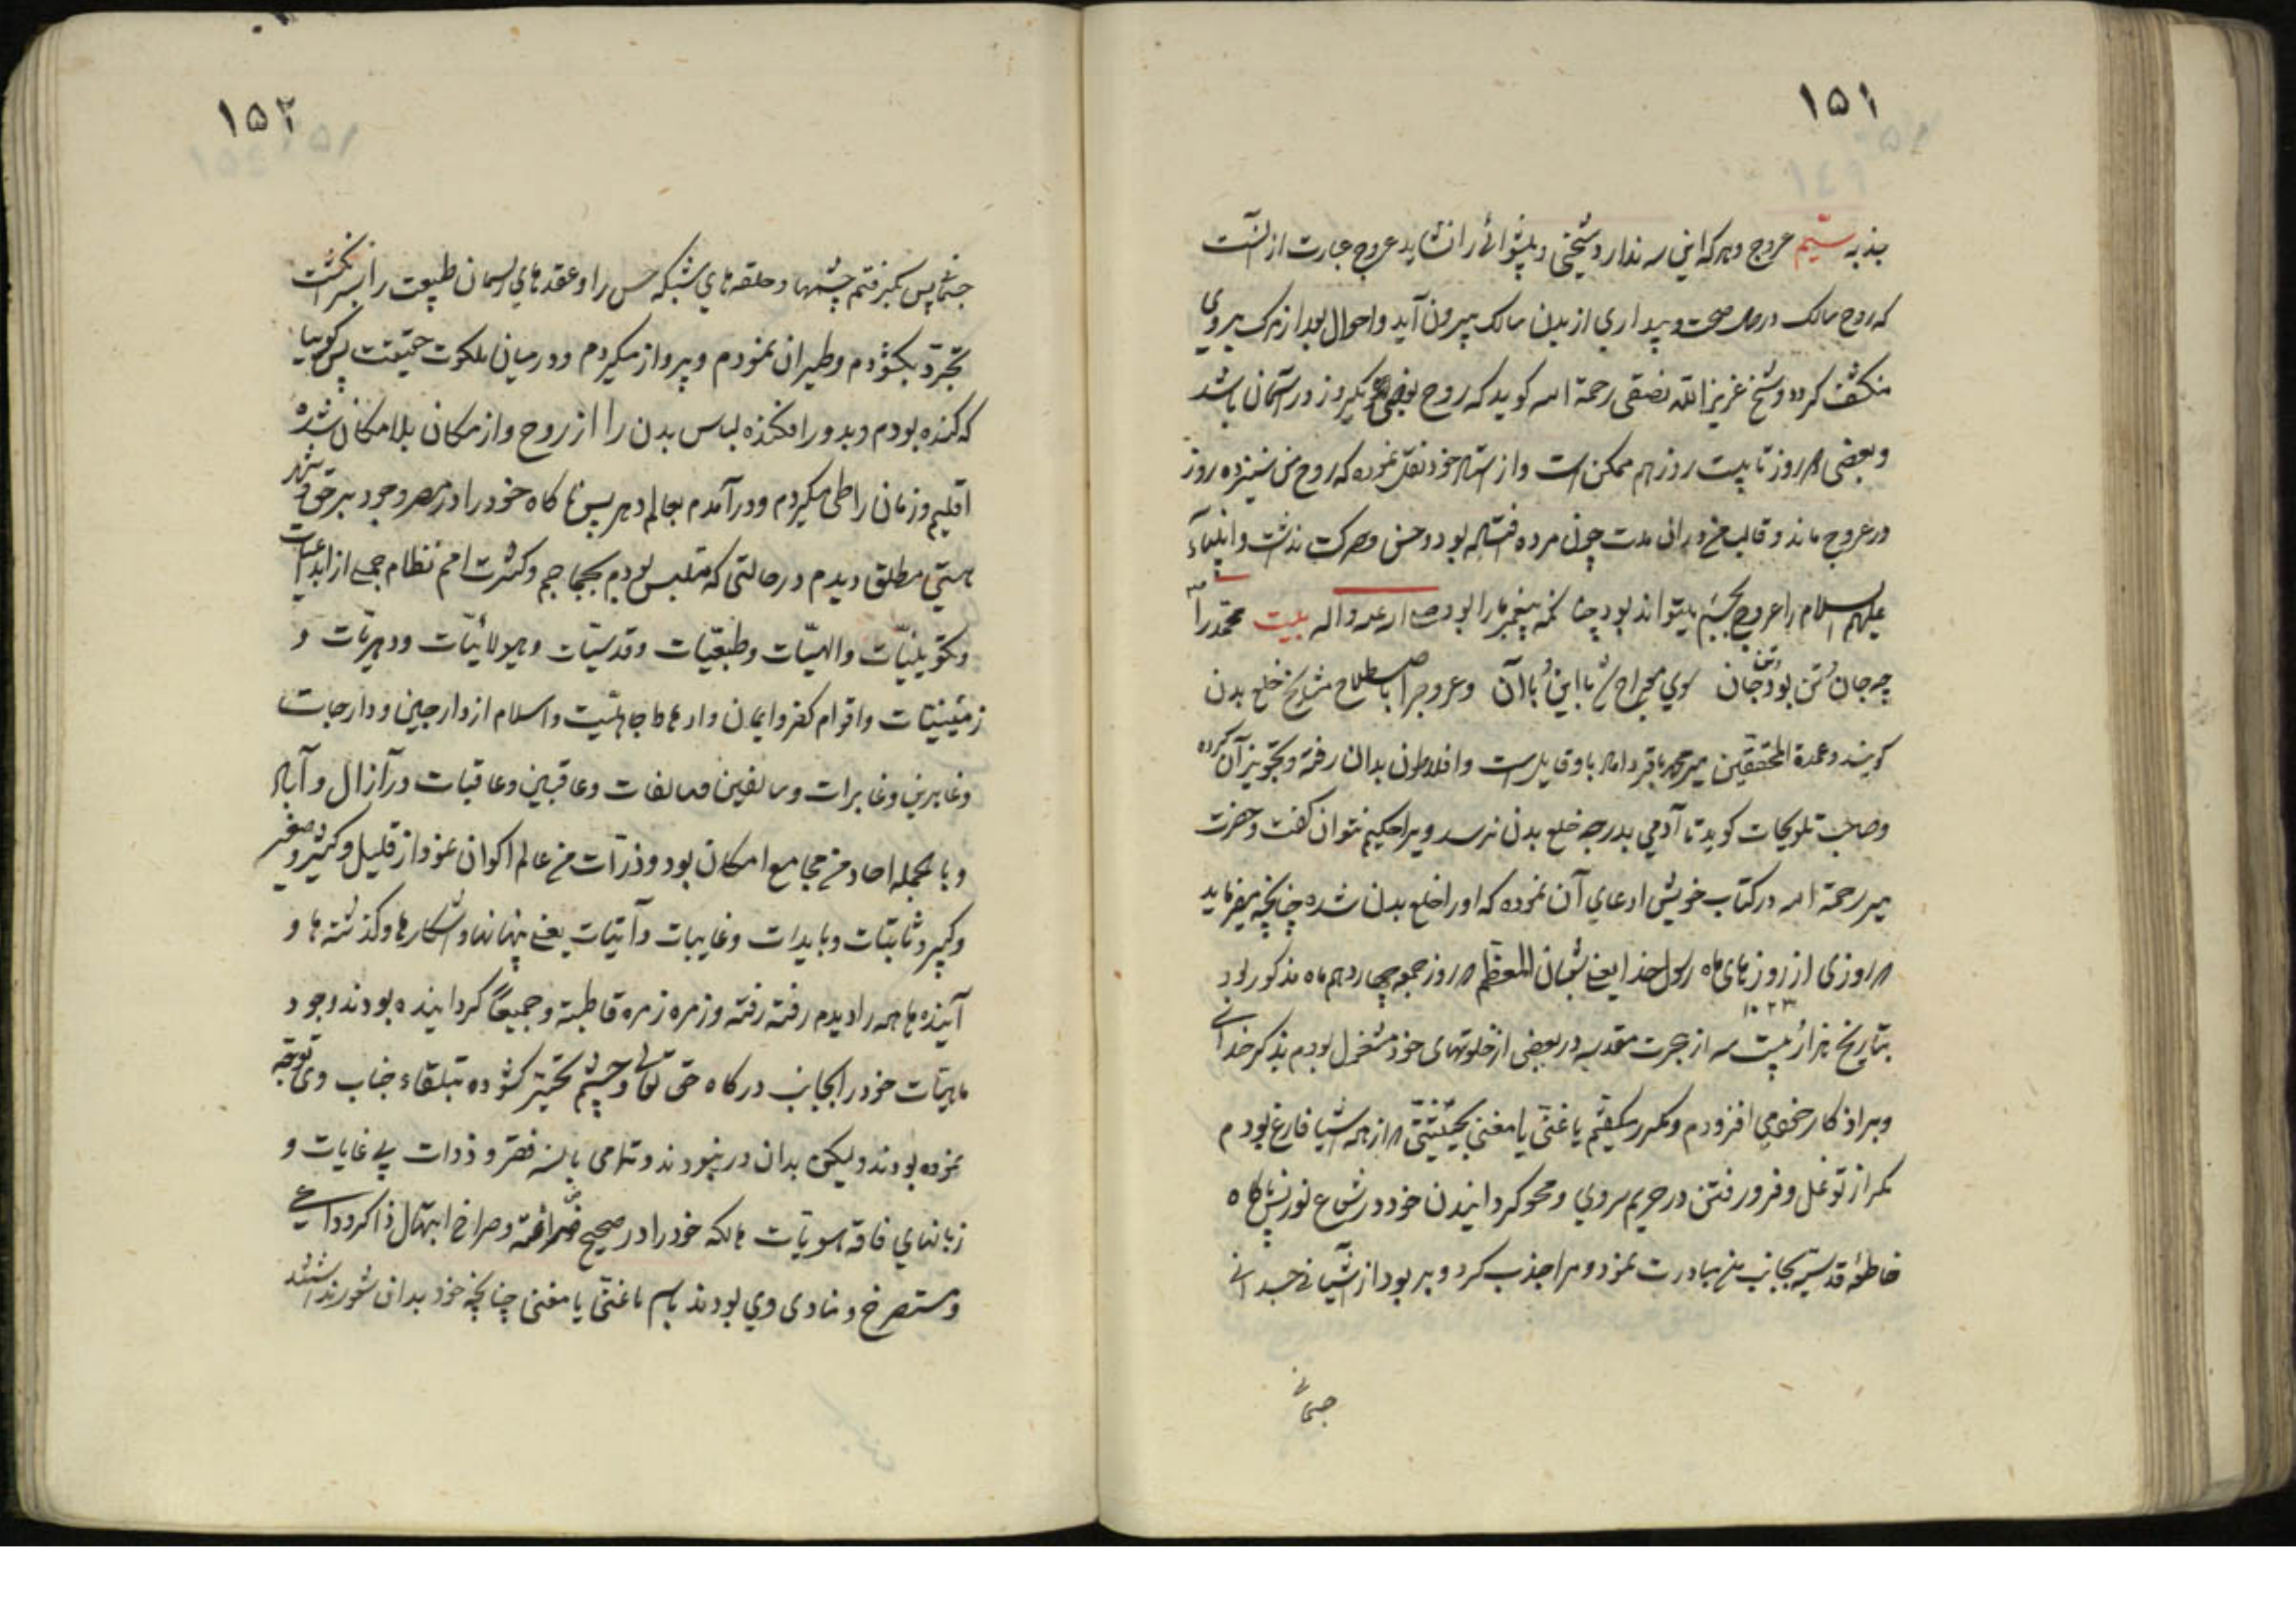 ۱۵۱
جذبه سیّم عروج و هر که این سه ندارد شیخی و پیشوائی را نشاید عروج عبارت از آنست
که روح سالک در حال صحت و بیداری از بدن سالک بیرون آید و احوال بعد از مرک بروی
منکشف کردد و شیخ عزیز الله نصفی رحمة الله کوید که روح بعضی یکروز در آسمان باشد
و بعضی روز تا بیست روز هم ممکن است و از استاد خود نقل نموده که روح من سیزده روز
در عروج ماند و قالب من در ان مدت چون مرده افتاده بود و حس و حرکت نداشت و انبیاء
علیهم السلام را عروج بجسم میتواند بود چنانکه پیغمبر ما را بود صلی الله علیه و اله بیت محمّد را
چه جان تن بود و تن جان سوی معراج شد با این و با آن و عروج را باصطلاح مشایخ خلع بدن
کویند و عمدة المحققین میر محمد باقر داماد باو قایل است و افلاطون بدان رفته و تجویز آن کرده
و صاحب تلویحات کوید تا آدمی بدرجه خلع بدن نرسد ویرا حکیم نتوان کفت و حضرت
میر رحمة الله در کتاب خویش ادعای آن نموده که او را خلع بدن شده چنانچه میفرماید
روزی از روزهای ماه رسول خدا یعنی شعبان المعظم روز جمعه چهاردهم ماه مذکور بود
۱۰۲۳
بتاریخ هزار و بیست سه از هجرت مقدسه در بعضی از خلوتهای خود مشغول بودم بذکر خدا
و بر اذکار خود می افزودم و مکرر میکفتم یا غنی یا مغنی بحیثیتی از همه اشیا فارغ بودم
مکر از توغل و فرو رفتن در حریم سر وی و محو کردانیدن خود در شعاع نورش ناکاه
خاطفه قدسیه بجانب من مبادرت نمود و مرا جذب کرد و بربود از آشیانه جسدانی
جسمانی
۱۵۲
جسمانی پس بر کرفتم چشمها و حلقه های شبکه حس را و عقدهای ریسمان طبیعت را بسر انکشت
تجرّد بکشودم و طیران نمودم و پرواز میکردم و در میان ملکوت حقیقت پس کوییا
که کنده بودم و بدور افکنده لباس بدن را از روح و از مکان بلا مکان شده
اقلیم زمان را طی میکردم و در آمدم بعالم دهر پس ناکاه خود را در مصر وجود بر حق و شهر
هستی مطلق دیدم در حالتی که متلبس بودم بجماجم و کثرت امم نظام جملی از ابداعیات
و تکوینیّات و الهیّات و طبعیّات و قدسیّات و هیولائیّات و دهریّات و
زمینیّات و اقوام کفر و ایمان و ارهاط جاهلیّت و اسلام از دارجین و دارجات
و غابرین و غابرات و سالفین و سالفات و عاقبین و عاقبات در آزال و آباد
و بالجمله احاد من مجامع امکان بود و ذرّات من عالم اکوان نمود از قلیل و کثیر و صغیر
و کبیر و ثابتات و بایدات و غایبات و آتیات یعنی پنهانها و آشکارها و کذشته ها و
آینده ها همه را دیدم رفته رفته و زمره زمره قاطبة و جمیعاً کردانیده بودند وجود
ماهیّات خود را بجانب درکاه حق تعالی و چشم تحیّر کشوده بتلقاء جناب وی توجّه
نموده بودند و لیکن بدان در نبودند و تمامی بالسنه فقر و ذوات بی غایات و
زبانهای فاقه هویّات هالکه خود را در ضجیج ضراعت و صراخ ابتهال ذاکر و داعی
و مستصرخ و منادی وی بودند باسم یا غنی یا مغنی چنانچه خود بدان شعور نداشتند